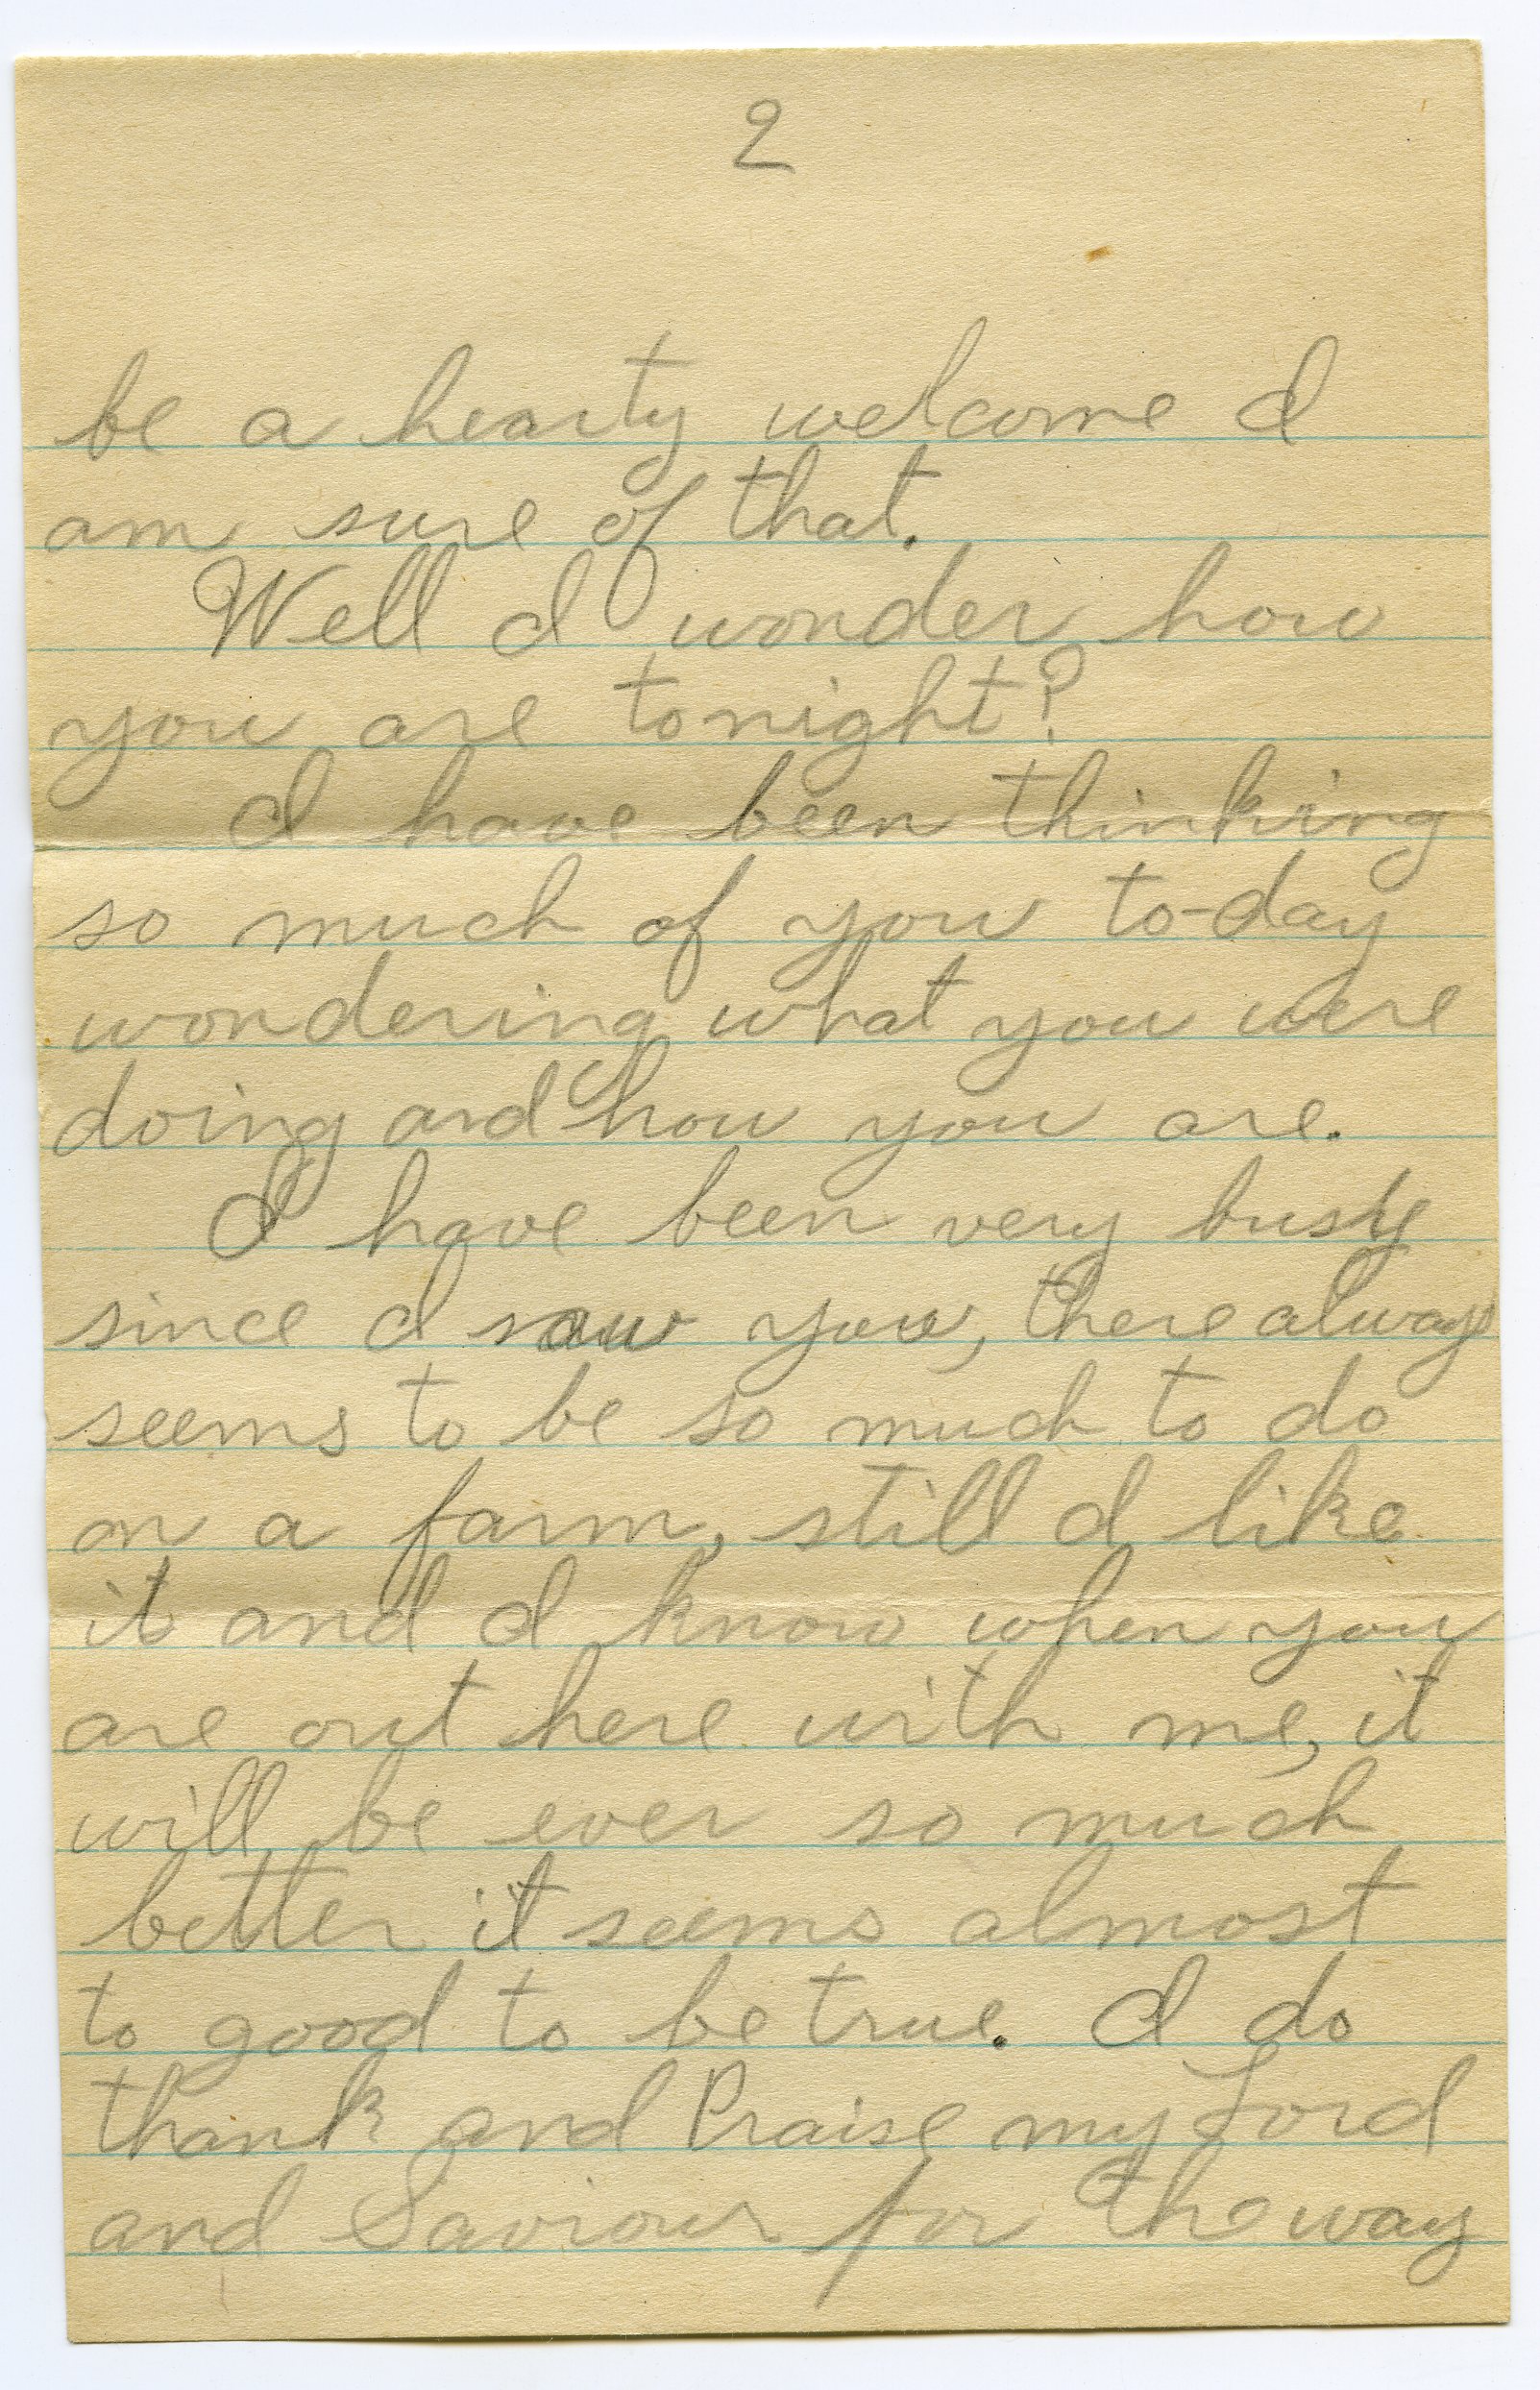 2
be a hearty welcome I
am sure of that.
Well I wonder how
you are tonight?
I have been thinking
so much of you to-day
wondering what you were
doing and how you are.
I have been very busy
since I saw you, there always
seems to be so much to do
on a farm, still I like
it and I know when you
are out here with me, it
will be ever so much
better it seems almost
to good to be true. I do
thank and Praise my Lord
and Saviour for the way